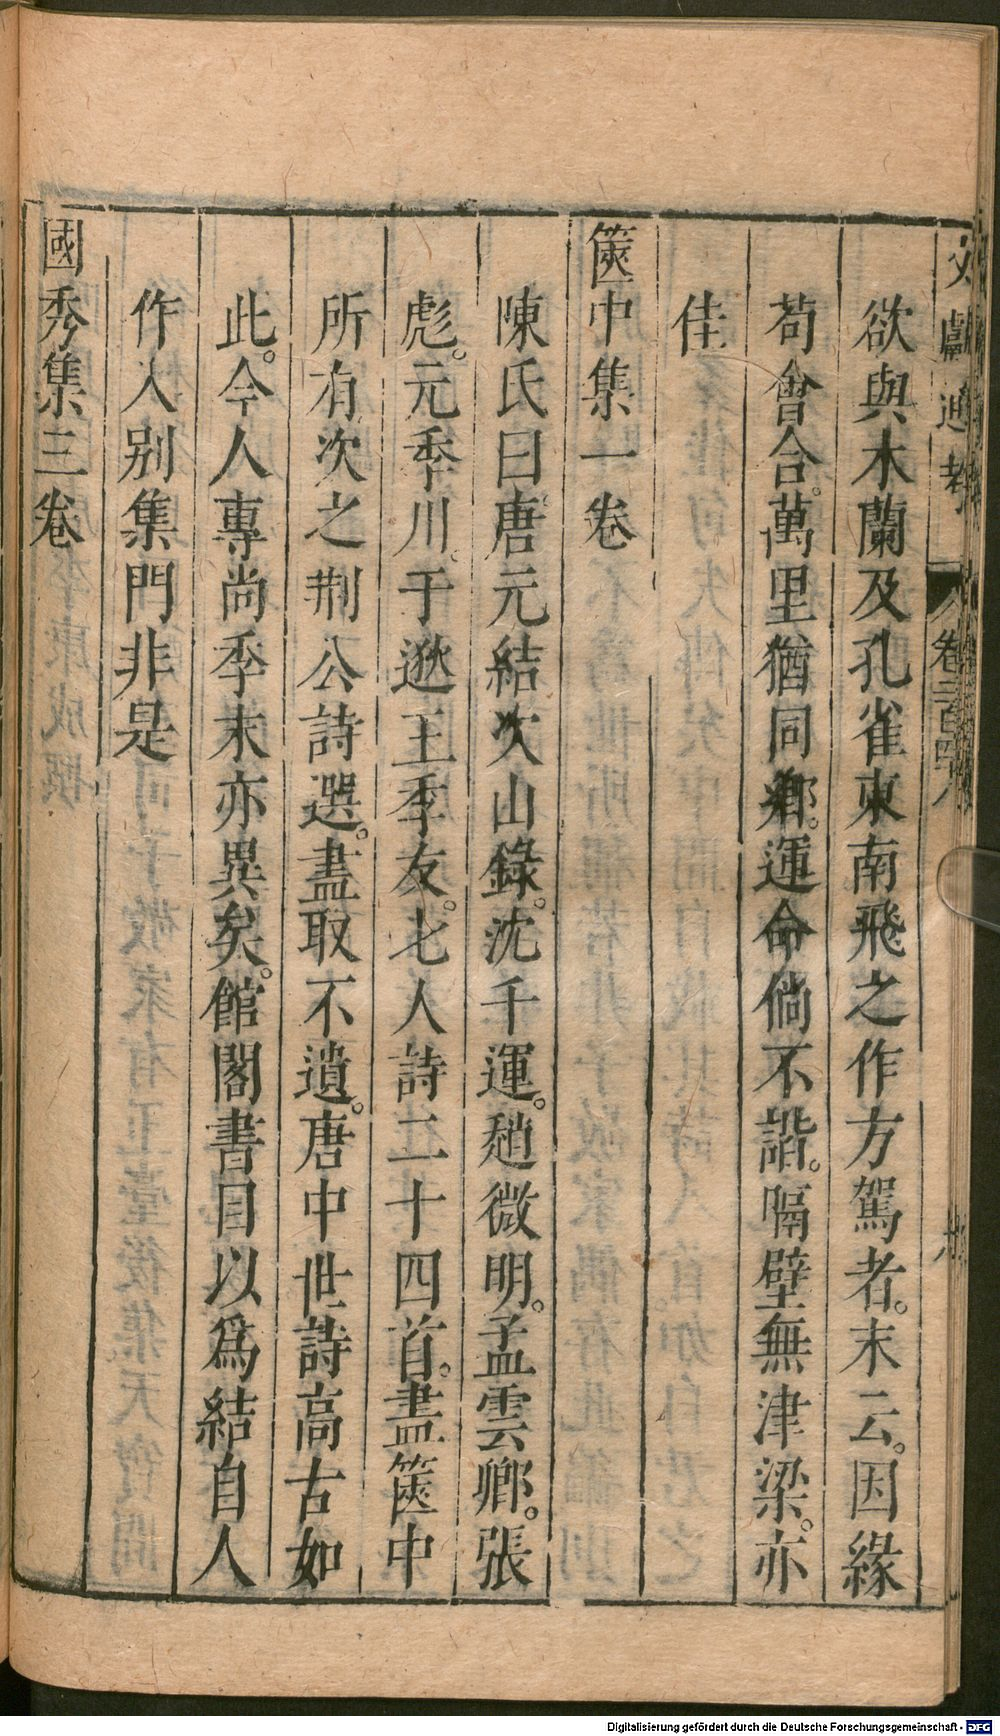 文獻通考 卷二百四八
欲與木蘭及孔雀東南飛之作方駕者。末云。因緣
苟會合。萬里猶同鄉。運命倘不諧。隔壁無津梁。亦
佳
篋中集一卷
陳氏曰。唐元結次山錄。沈千運。趙微明。孟雲卿。張
彪。元季川。于逖。王季友。七人詩二十四首。盡篋中
所有次之。荆公詩選。盡取不遺。唐中世詩高古如
此。今人專尚季末亦異矣。館閣書目以爲結自人
作入别集門非是
國秀集三卷
Digitalisierung gefördert durch die Deutsche Forschungsgemeinschaft - DFG